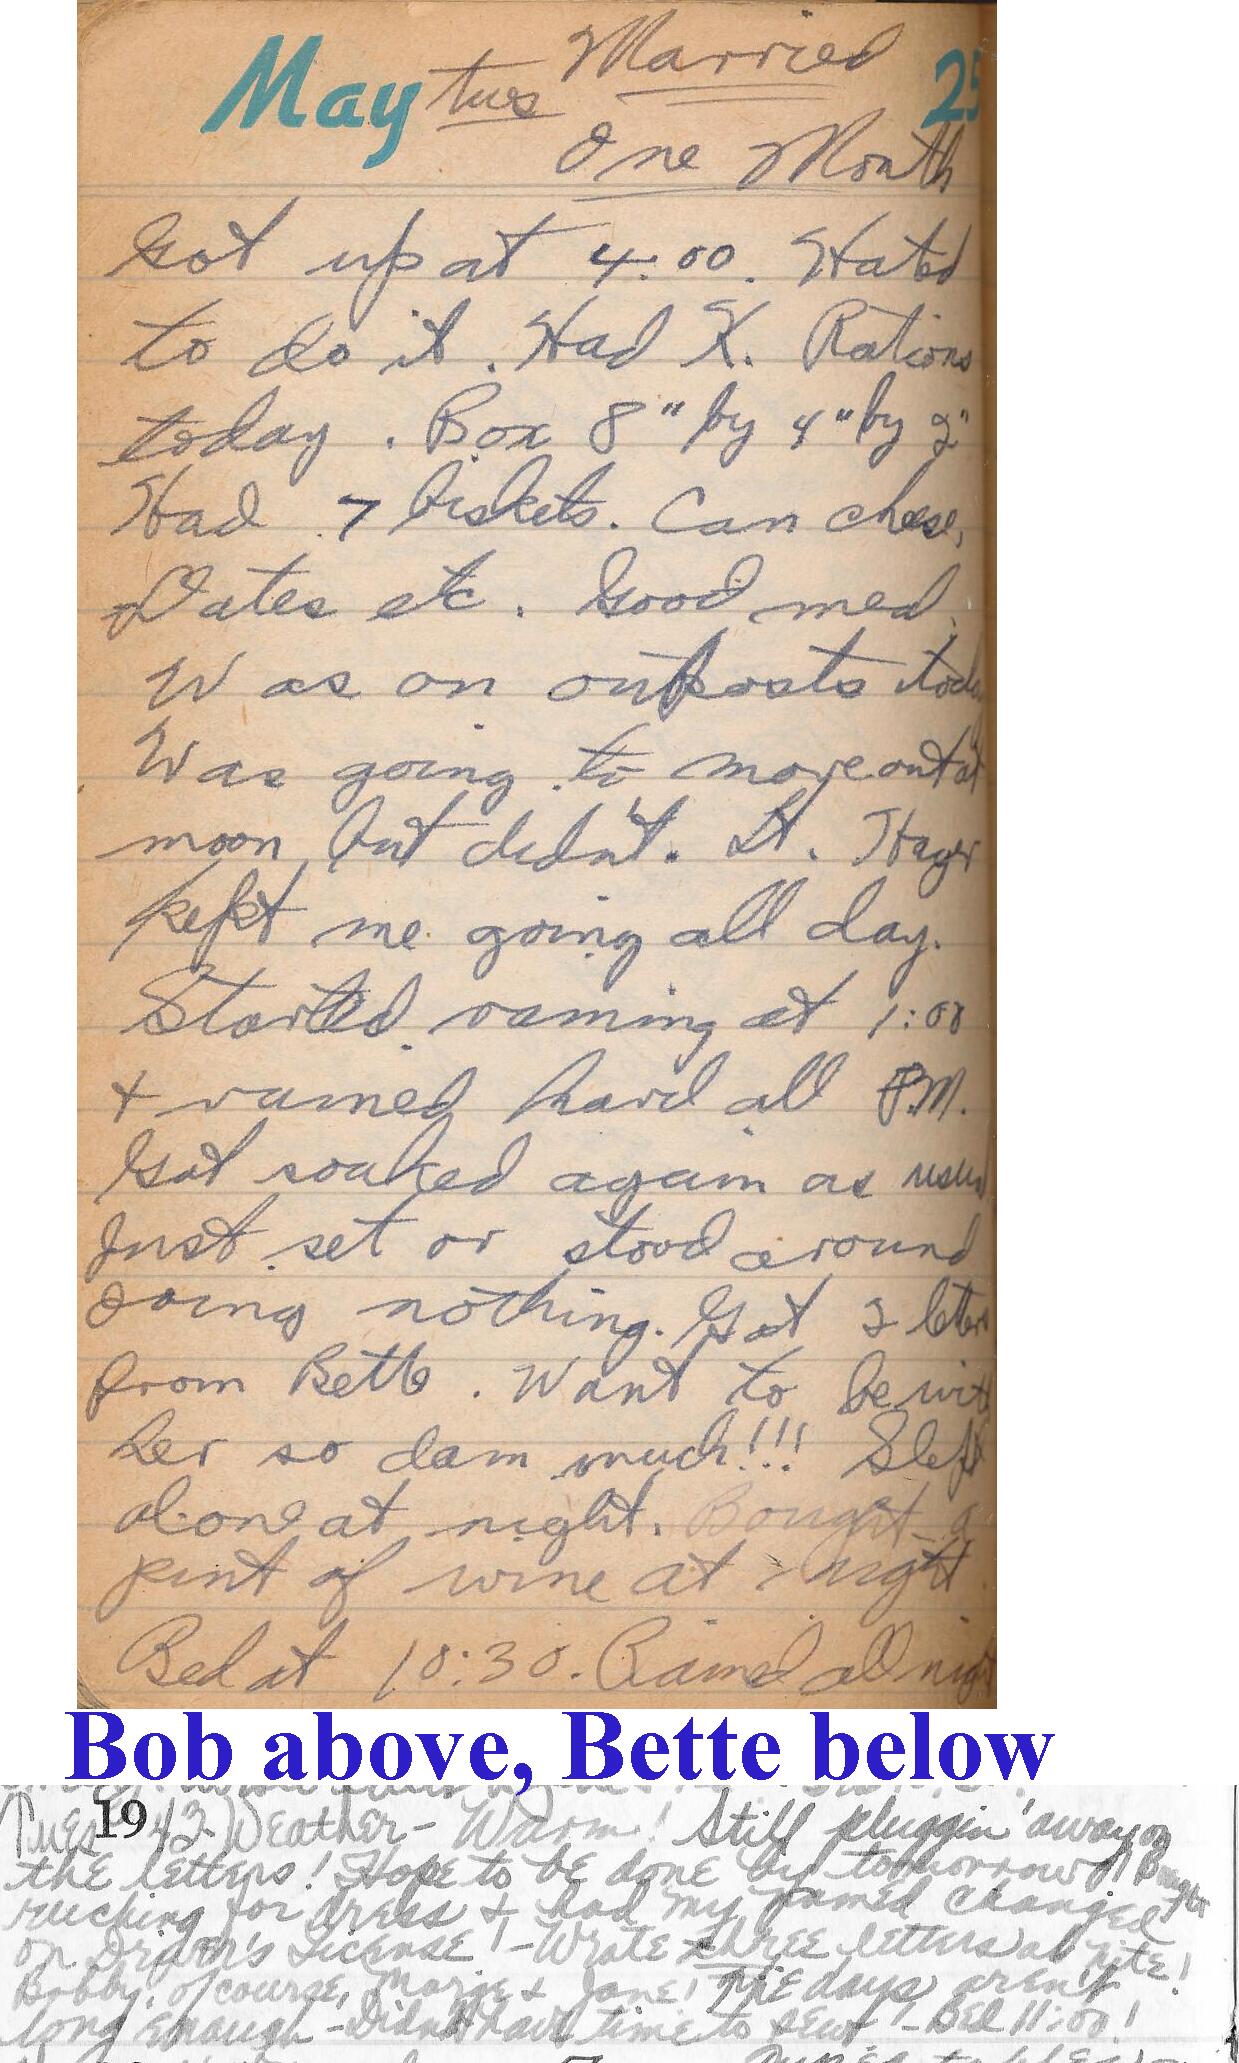 May tues Married 25
One Month
Got up at 4:00. Hated
to do it. Had K. Rations
today. Box 8" by 4" by 2"
Had 7 biskets. Can cheese,
Dates etc. Good meal.
Was on outposts today
Was going to move out at
noon but didn't. Lt. Hager
kept me going all day.
Started raining at 1:00
+ rained hard all P.M.
Got soaked again as usual
Just set or stood around
doing nothing. Got 2 letters
from Bette. Want to be with
her so dam much!!! Slept
alone at night. Bought a
pint of wine at night.
Bed at 10:30. Rained all night
Bob above, Bette below
Tues 1943 - Weather - Warm! Still pluggin' away on
the letters! Hope to be done by tomorrow! Bought
ruching for dress + had my named changed
on Driver's License! - Wrote three letters at nite!
Bobby, of course, Marge + Jane! The days aren't
long enough - Didn't have time to sew - Bed 11:00!